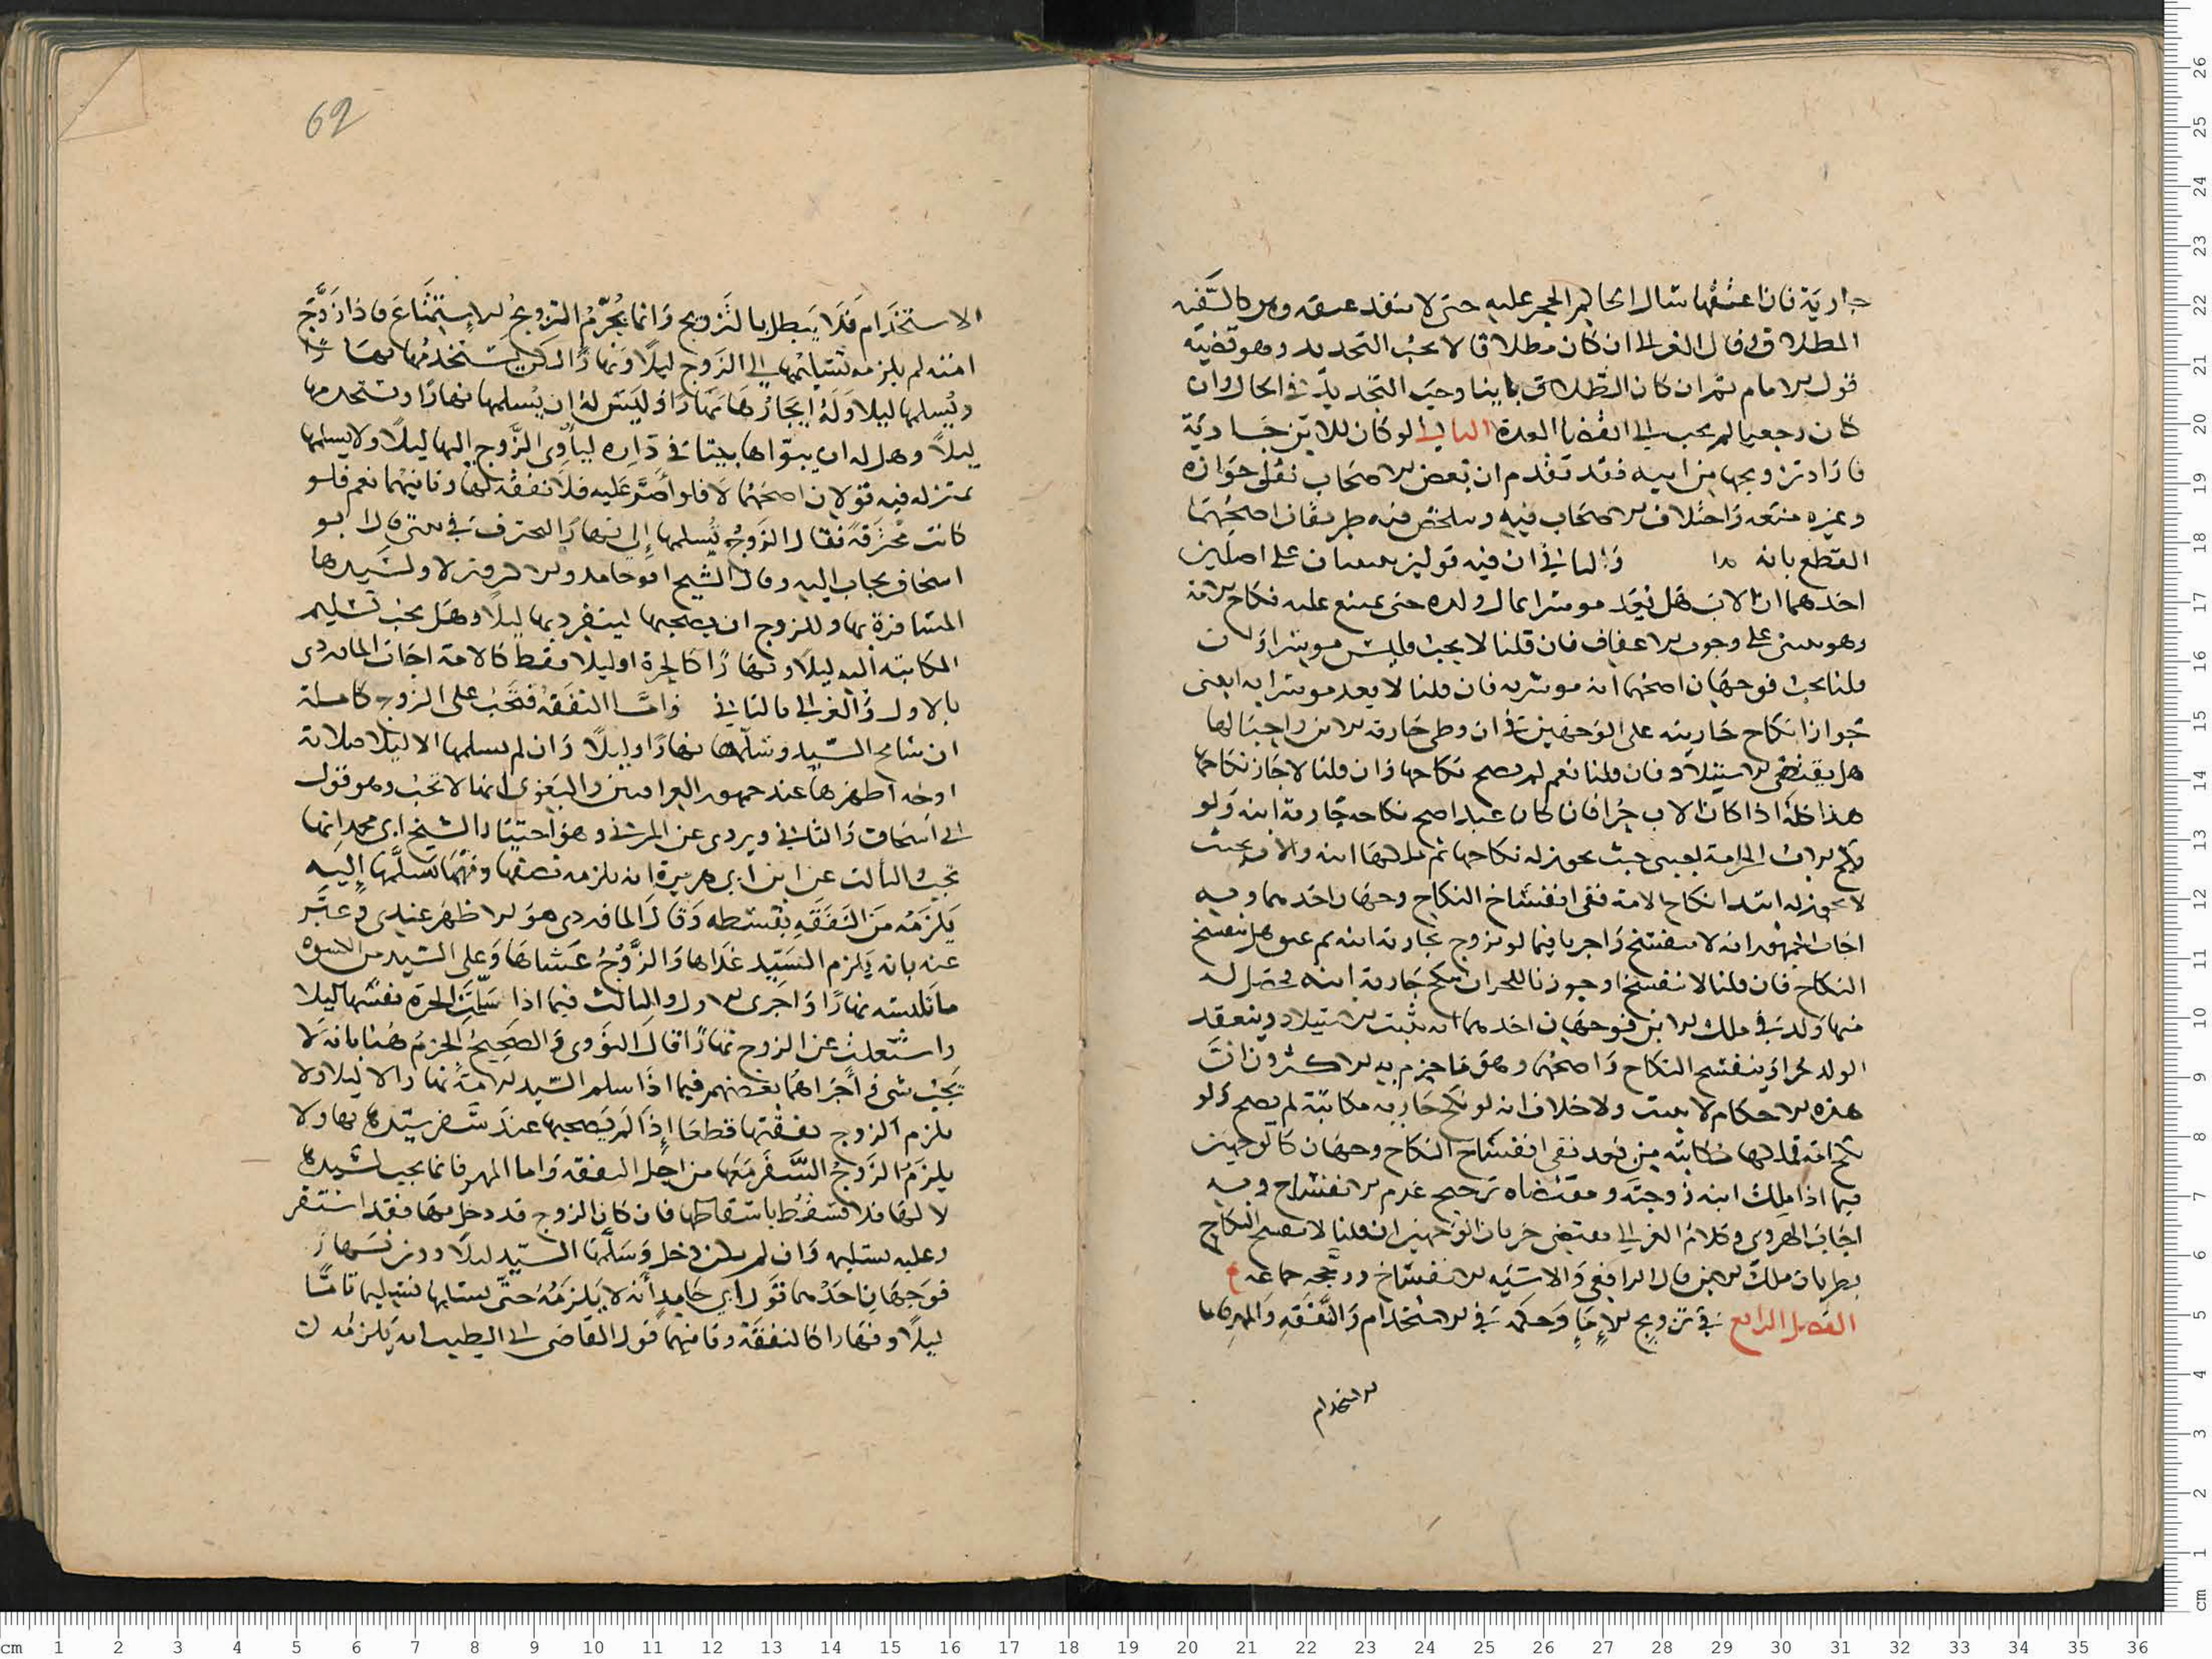 جارية فان اعتقها سال الحاكم الحجر عليه حتى لا ينفذ عتقه وهل كالسفيه
المطلاق فقال الغزالي ان كان مطلاقا لا يجب التجديد وهو قضية
قول الامام ثم ان كان الطلاق باينا وجب التجديد في الحال وان
كان رجعيا لم يجب الى انقضا العدة الثالث لو كان للابن جارية
فاراد تزويجها من ابيه فقد تقدم ان بعض الاصحاب نقل جوازه
وغيره منعه واختلاف الاصحاب فيه وتلخص فيه طريقان اصحهما
القطع بانه والثاني ان فيه قولين على اصلين
احدهما ان الاب هل يعد موسرا بمال ولده حتى يمتنع عليه نكاح الامة
وهو مبني على وجوب الاعفاف فان قلنا لا يجب فليس موسرا وان
قلنا يجب فوجهان اصحهما انه موسر به فان قلنا لا يعد موسرا به ابعنى
جواز انكاح جاريته على الوجهين في ان وطي جارية الابن واحبالها
هل يقتضي الاستيلاد فان قلنا نعم لم يصح نكاحها وان قلنا لا جاز نكاحها
هذا كله اذا كان الاب حرا فان كان عبدا صح نكاحه جارية ابنه ولو
نكح الاب الحر امة لجنبي حيث يجوز له نكاحها ثم ملكها ابنه والاب بحيث
لا يجوز له ابتدا نكاح الامة ففي انفساخ النكاح وجهان احدهما وبه
اجاب الجمهور انه لا ينفسخ واجريا فيما لو تزوج بجارية ابنه ثم عتق هل ينفسخ
النكاح فان قلنا لا ينفسخ او جوزنا للحر ان ينكح جارية ابنه فحصل له
منها ولد في ملك الابن فوجهان احدهما انه يثبت الاستيلاد وينعقد
الولد حرا وينفسخ النكاح واصحهما وهو ما جزم به الاكثرون ان
هذه الاحكام لا تثبت ولا خلاف انه لو نكح جارية مكاتبة لم يصح ولو
نكح امة فملكها مكاتبه من بعد ففي انفساخ النكاح وجهان كالوجهين
فيما اذا ملك ابنه زوجته ومقتضاه ترجيح عدم الانفساخ وبه
اجاب الهروي وكلام الغزالي يقتضي جريان الوجهين ان قلنا لا ينفسخ النكاح
بطريان ملك الابن قال الرافعي والاشبه الانفساخ ورجحه جماعة
الفصل الرابع في تزويج الاماء وحكمه في الاستخدام والنفقة والمهر فاما
الاستخدام
62
الاستخدام فلا يبطل بالتزويج وانما يحرم التزويج الاستمتاع فاذا زوج
امته لم يلزمه تسليمها الى الزوج ليلا ونهارا لكن يستخدمها نهارا
ويسلمها ليلا وله ايجارها نهارا وليس له ان يسلمها نهارا ويستخدمها
ليلا وهل له ان يبوأها بيتا في داره ليأوي الزوج اليها ليلا ولا يسلمها
بمنزله فيه قولان اصحهما لا فلو أصر عليه فلا نفقة لها وثانيهما نعم فلو
كانت محترفة فقال الزوج تسلمها إلي نهارا لتحترف في بيتي قال ابو
اسحاق يجاب اليه وقال الشيخ ابو حامد والاكثرون لا ولسيدها
المسافرة بها وللزوج ان يصحبها لينفرد بها ليلا وهل يجب تسليم
المكاتبة اليه ليلا ونهارا كالحرة او ليلا فقط كالامة اجاب الماوردي
بالاول والغزالي بالثاني واما النفقة فتجب على الزوج كاملة
ان سامح السيد وسلمها نهارا وليلا وان لم يسلمها الا ليلا فثلاثة
اوجه اظهرها عند جمهور العراقيين والبغوي انها لا تجب وهو قول
ابي اسحاق والثاني ويروى عن المزني وهو اختيار الشيخ ابي محمد انها
تجب الثالث عن ابن ابي هريرة انه يلزمه نصفها ومهما تسلمها إليه
يلزمه من النفقة بقسطه وقال الماوردي هو الاظهر عندي وعبر
عنه بانه يلزم السيد غداها والزوج عشاها وعلى السيد من الكسوة
ما تلبسه نهارا واجري الاول والثالث فيما اذا سلمت الحرة نفسها ليلا
واشتغلت عن الزوج نهارا قال النووي والصحيح الجزم هنا بانه لا
يجب شي واجراها بعضهم فيما اذا سلم السيد الامة نهارا لا ليلا ولا
يلزم الزوج نفقتها قطعا اذا لم يصحبها عند سفر سيدها بها ولا
يلزم الزوج السفر معها من اجل النفقة واما المهر فانما يجب لسيدها
لا لها فلا تسقط باسقاطها فان كان الزوج قد دخل بها فقد استقر
وعليه تسليمه وان لم يكن دخل وسلمها السيد ليلا دون نهار
فوجهان احدهما قول ابي حامد أنه لا يلزمه حتى يسلمها تسليما تاما
ليلا ونهارا كالنفقة وثانيهما قول القاضي ابي الطيب انه يلزمه لان